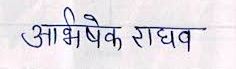 अभिषेक राघव